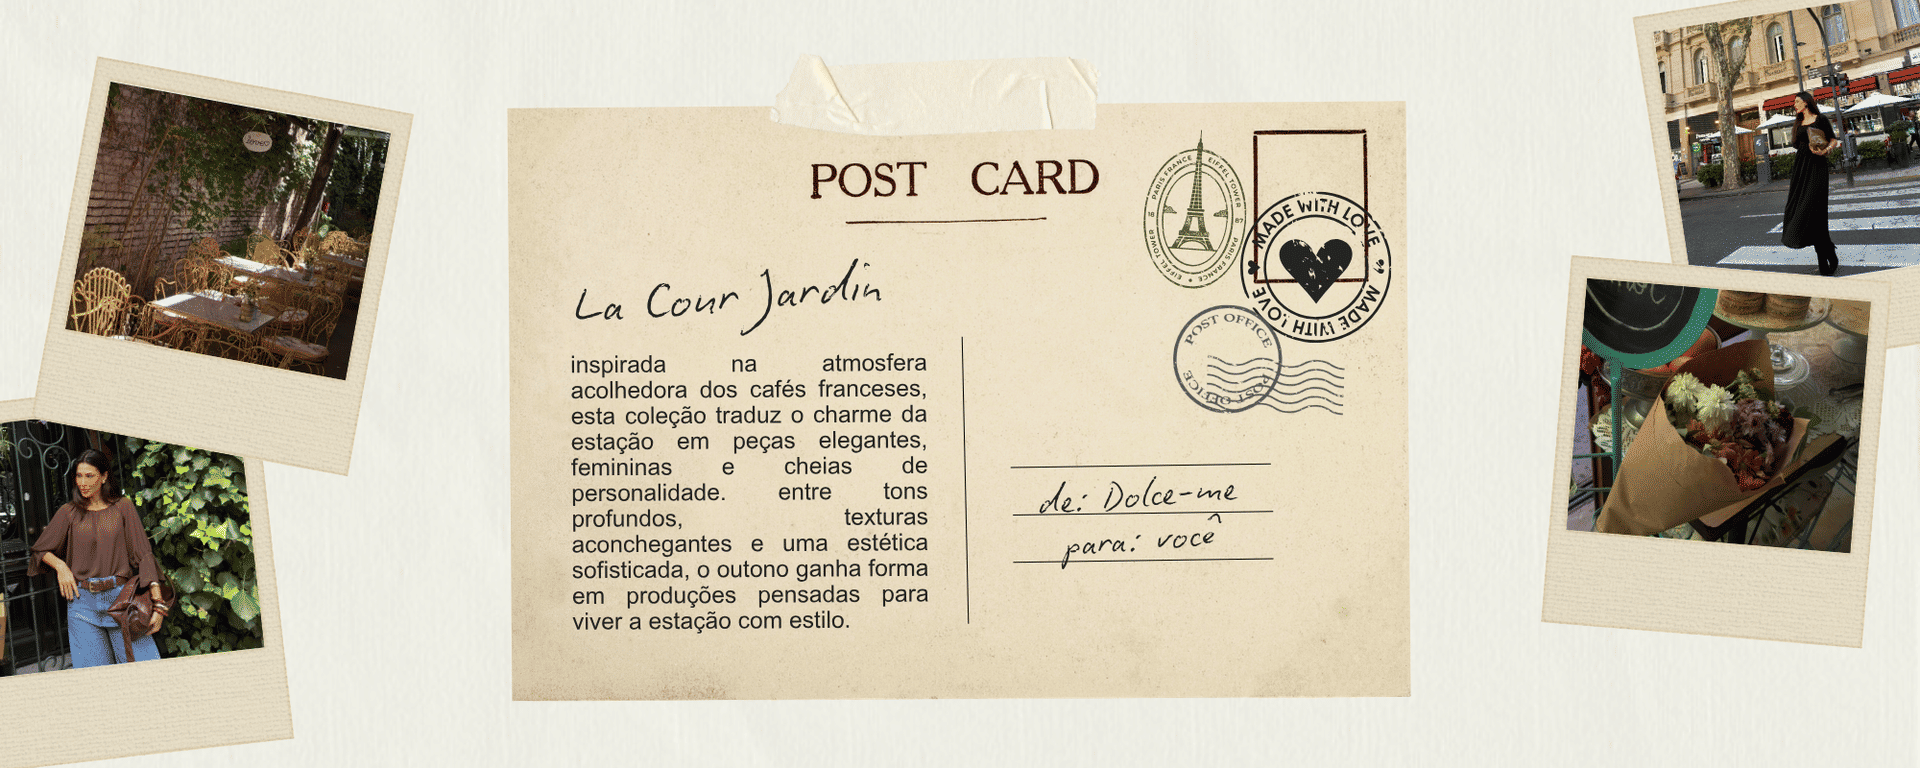 POST CARD
PARIS FRANCE • EIFFEL TOWER
PARIS FRANCE • EIFFEL TOWER
16 87
MADE WITH LOVE
MADE WITH LOVE
POST OFFICE
POST OFFICE
La Cour Jardin
inspirada na atmosfera
acolhedora dos cafés franceses,
esta coleção traduz o charme da
estação em peças elegantes,
femininas e cheias de
personalidade. entre tons
profundos, texturas
aconchegantes e uma estética
sofisticada, o outono ganha forma
em produções pensadas para
viver a estação com estilo.
de: Dolce-me
para: você